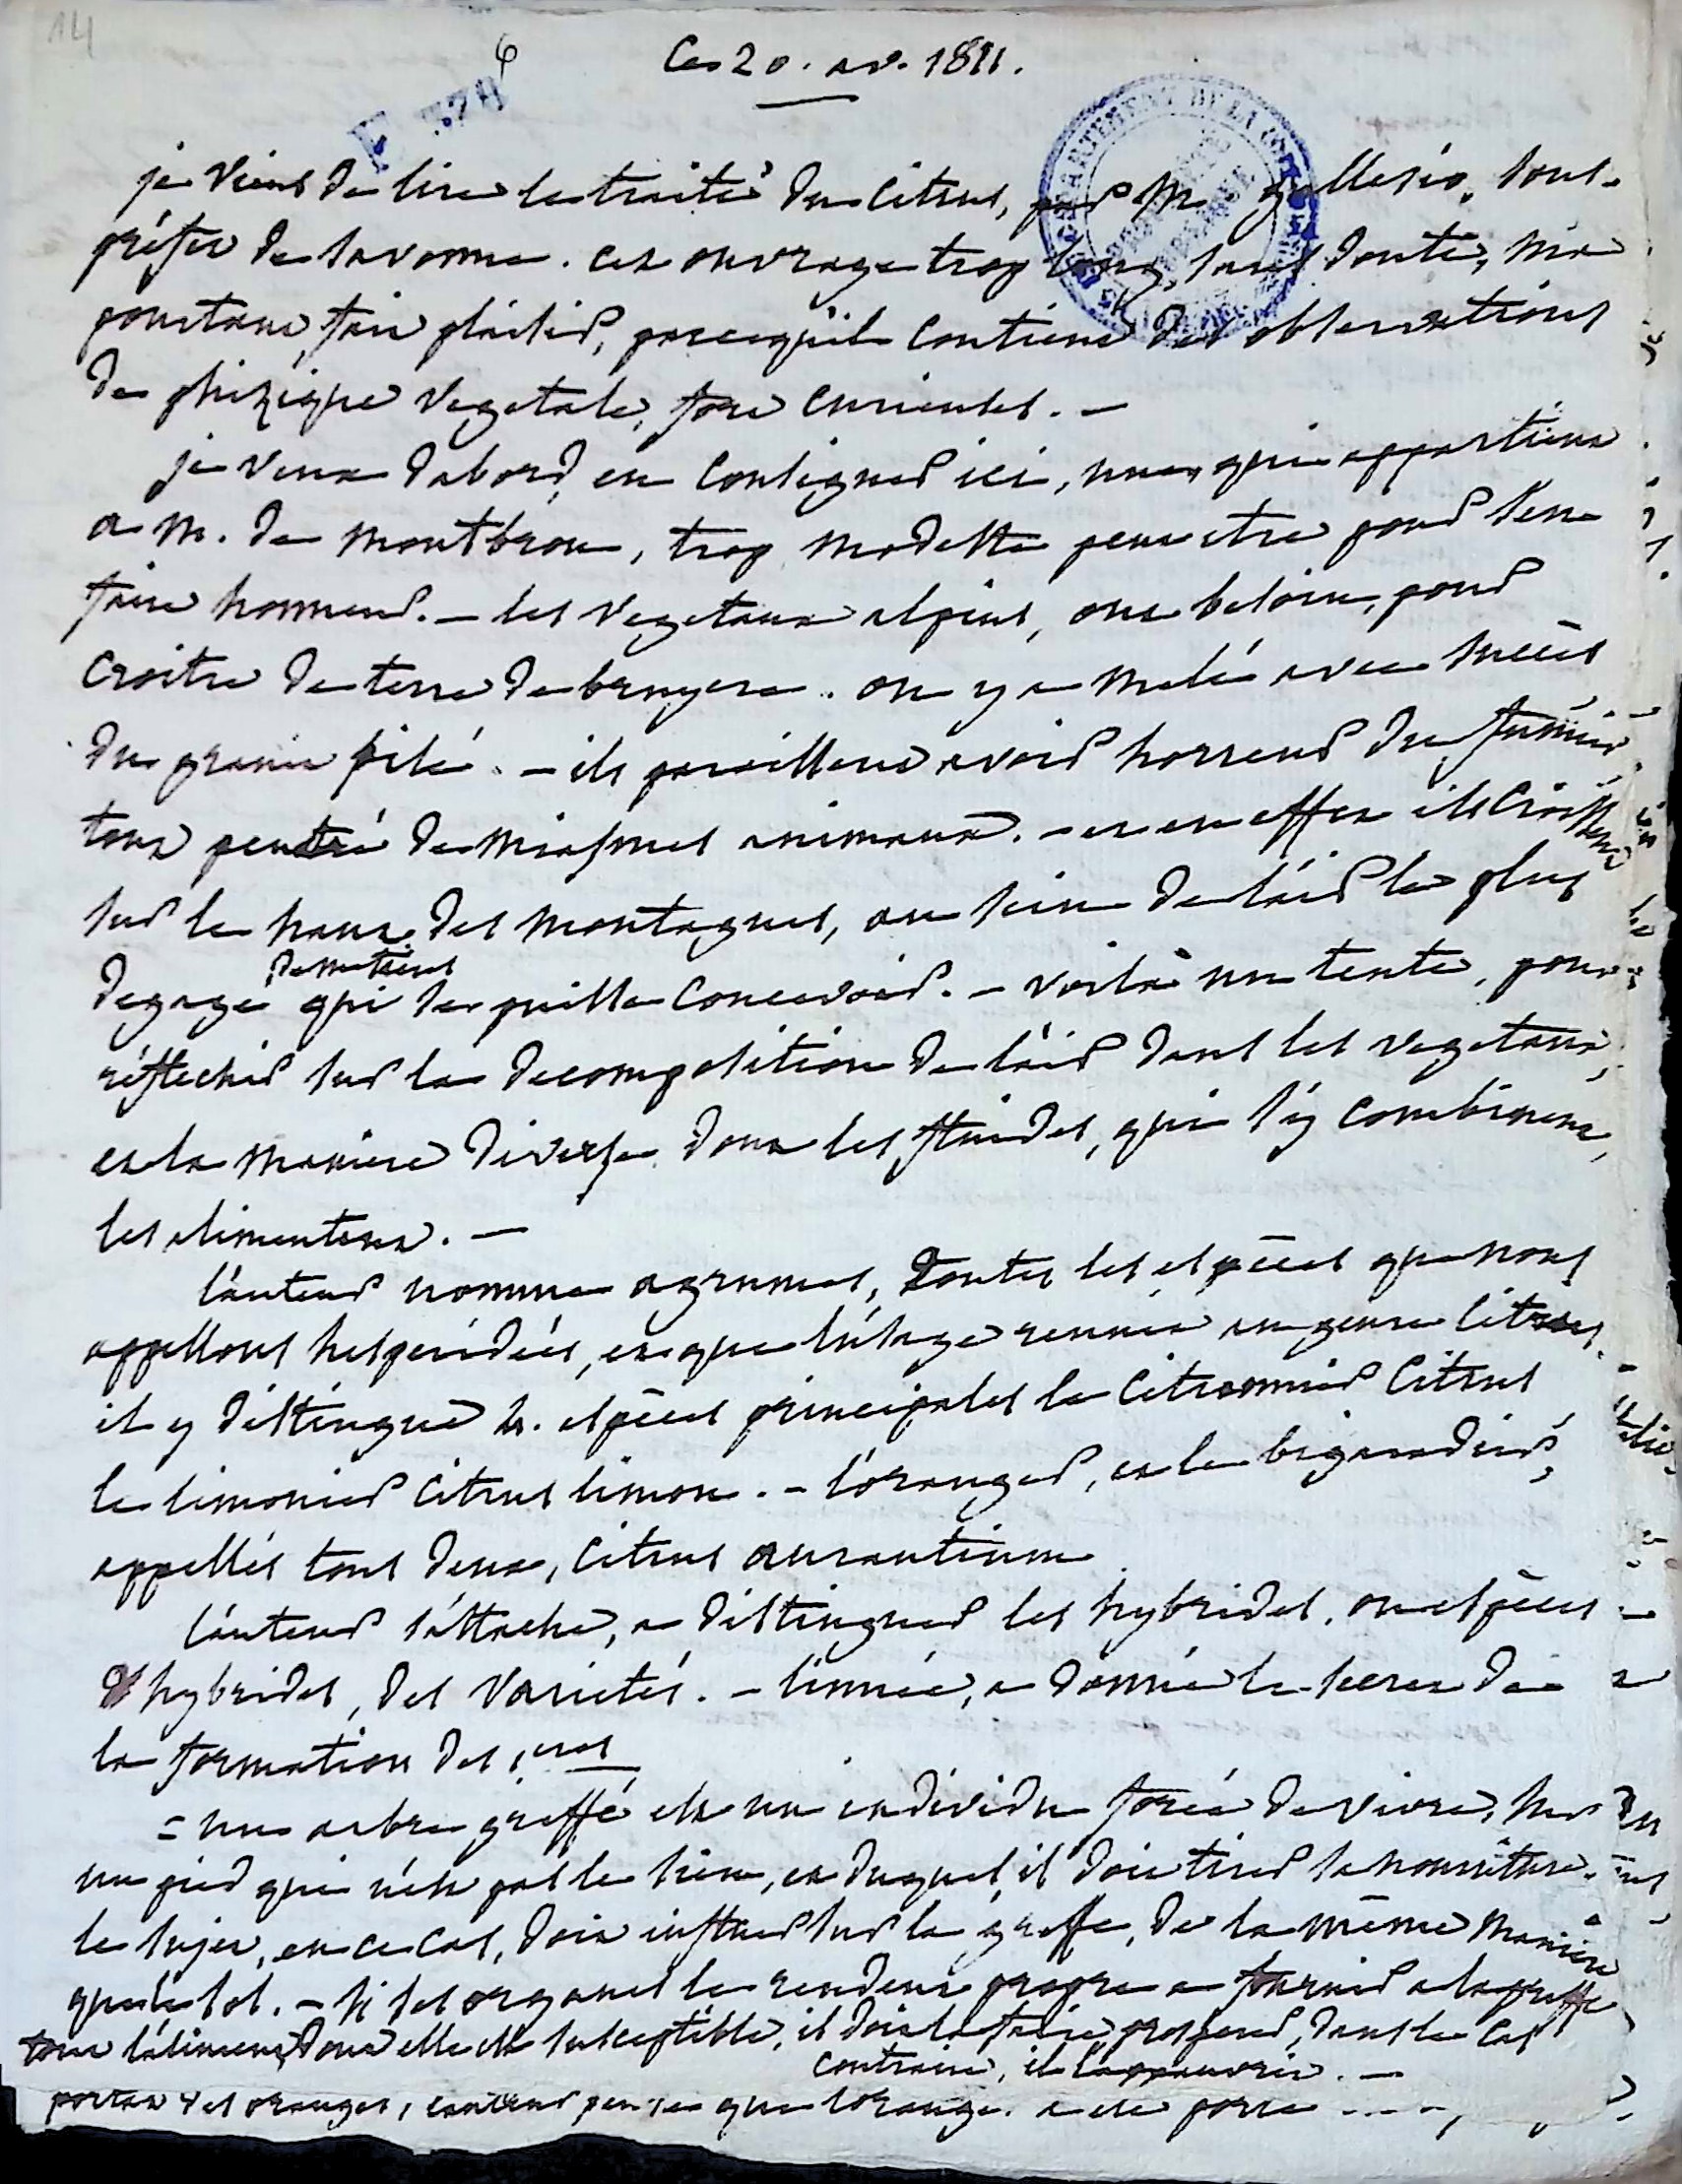 14
6
Ce 20. av. 1811.
je viens de lire le traité du Citrus, par M. gallesio, sous-
préfet de Savonne. cet ouvrage trop long, sans doute, m'a
pourtant, fait plaisir, parcequ'il contient des observations
de phizique vegetale, fort curieuses. —
je veux dabord, en consigner ici, une, qui appartient
a M. de Montbron, trop modeste peut etre pour s'en
faire honneur. — les vegetaux alpins, ont besoin, pour
croitre de terre de bruyere. on y a melé avec succès
du granit pilé. — ils paroissent avoir horreur du fumier,
tout penetré de miasmes animaux. — et en effet ils croissent
sur le haut des montagnes, au sein de l'air le plus
de mixtions
degagé qui se puisse concevoir. — voila un texte, pour
réflechir sur la decomposition de l'air dans les vegetaux,
et la maniere diverse dont les fluides, qui s'y combinent,
les alimentent. —
l'auteur nomme agrumes, toutes les espèces que nous
appellons hesperidées, et que l'usage reunit au genre Citrus.
il y distingue 4. espèces principales le Citronnier Citrus
le limonier Citrus limon. — l'oranger, et le bigaradier,
appellés tous deux, Citrus aurantium
l'auteur s'attache, a distinguer les hybrides, ou espèces
d'hybrides, des variétés. — linnée, a donné le secret de
la formation des 1eres
= un arbre greffé est un individu forcé de vivre, sur
un pied qui n'est pas le sien, et duquel, il doit tirer sa nourriture.
le sujet, en ce cas, doit influer sur la greffe, de la même maniere
que le sol. — si ses organes le rendent propre a fournir a la greffe
tout l'aliment, dont elle est susceptible, il doit la faire prosperer, dans le cas
contraire, il l'appauvrit. —
portant des oranges,